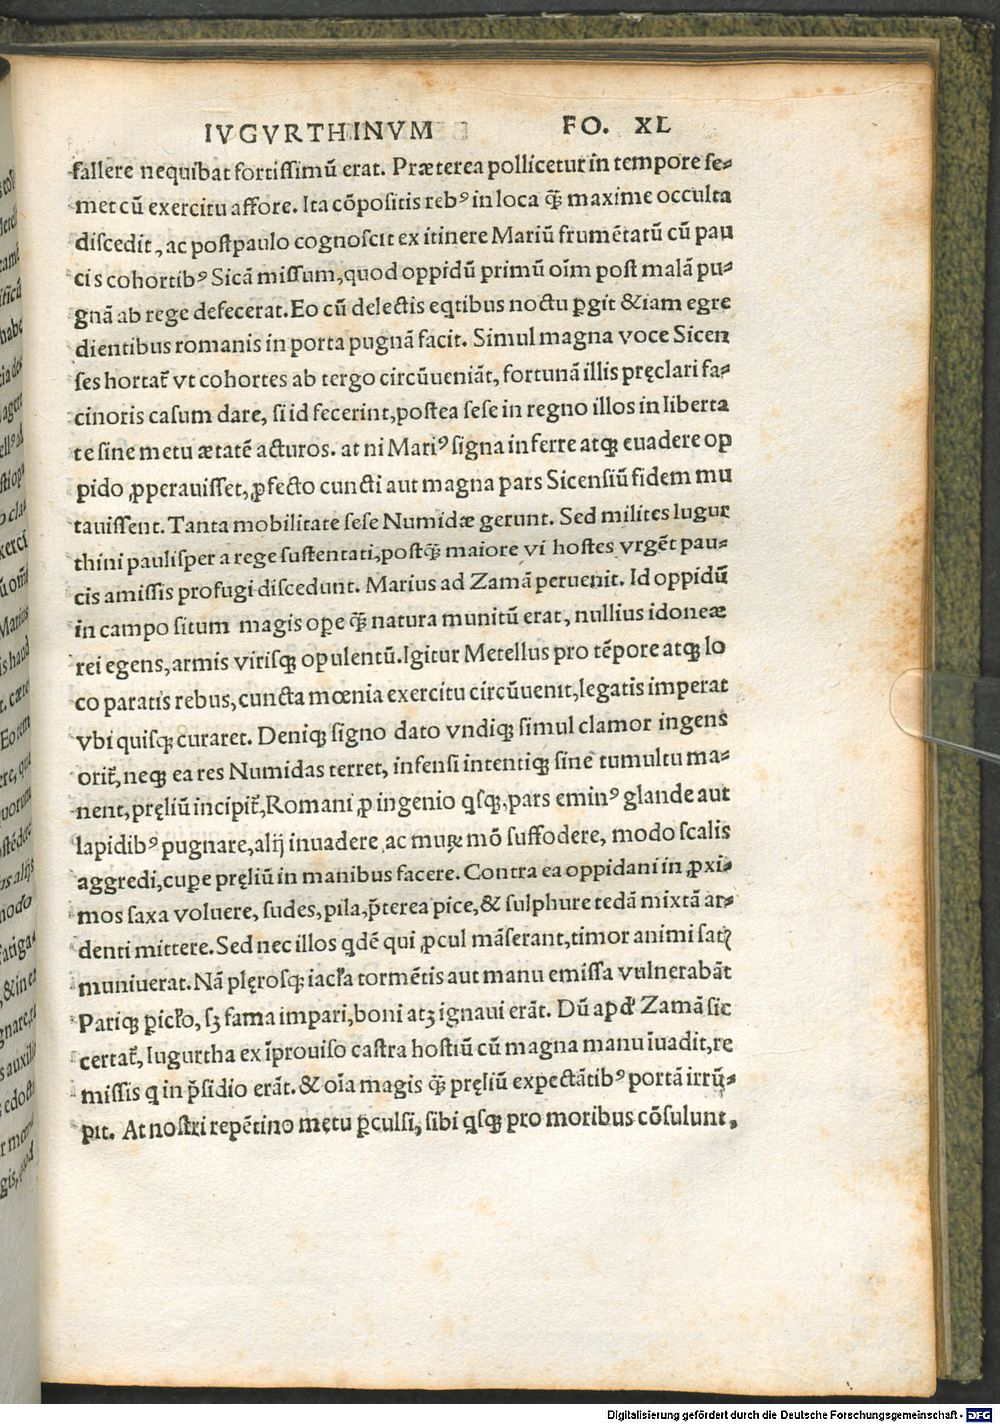 IVGVRTHINVM FO. XL
fallere nequibat fortiſſimũ erat. Præterea pollicetur in tempore ſe⸗
met cũ exercitu affore. Ita cõpoſitis rebꝰ in loca q̃ maxime occulta
diſcedit, ac poſtpaulo cognoſcit ex itinere Mariũ frumẽtatũ cũ pau
cis cohortibꝰ Sicã miſſum, quod oppidũ primũ oĩm poſt malã pu⸗
gnã ab rege defecerat. Eo cũ delectis eqtibus noctu ꝑgit & iam egre
dientibus romanis in porta pugnã facit. Simul magna voce Sicen
ſes hortat̃ vt cohortes ab tergo circũueniãt, fortunã illis pręclari fa⸗
cinoris caſum dare, ſi id fecerint, poſtea ſeſe in regno illos in liberta
te ſine metu ætatẽ acturos. at ni Mariꝰ ſigna inferre atqꝫ euadere op
pido ꝓperauiſſet, ꝓfecto cuncti aut magna pars Sicenſiũ fidem mu
tauiſſent. Tanta mobilitate ſeſe Numidæ gerunt. Sed milites Iugur
thini pauliſper a rege ſuſtentati, poſtq̃ maiore vi hoſtes vrgẽt pau⸗
cis amiſſis profugi diſcedunt. Marius ad Zamã peruenit. Id oppidũ
in campo ſitum magis ope q̃ natura munitũ erat, nullius idoneæ
rei egens, armis viriſqꝫ opulentũ. Igitur Metellus pro tẽpore atqꝫ lo
co paratis rebus, cuncta mœnia exercitu circũuenit, legatis imperat
vbi quiſqꝫ curaret. Deniqꝫ ſigno dato vndiqꝫ ſimul clamor ingens
orit̃, neqꝫ ea res Numidas terret, infenſi intentiqꝫ ſine tumultu ma⸗
nent, pręliũ incipit̃, Romani ꝓ ingenio qſqꝫ, pars eminꝰ glande aut
lapidibꝰ pugnare, alij inuadere ac muꝝ mõ ſuffodere, modo ſcalis
aggredi, cuꝑe pręliũ in manibus facere. Contra ea oppidani in ꝓxi⸗
mos ſaxa voluere, ſudes, pila, p̃terea pice, & ſulphure tedã mixtã ar⸗
denti mittere. Sed nec illos qdẽ qui ꝓcul mãſerant, timor animi ſatꝭ
muniuerat. Nã plęroſqꝫ iacl̃a tormẽtis aut manu emiſſa vulnerabãt
Pariqꝫ ꝑicl̃o, ſꝫ fama impari, boni atꝫ ignaui erãt. Dũ apđ Zamã ſic
certat̃, Iugurtha ex ĩprouiſo caſtra hoſtiũ cũ magna manu ĩuadit, re
miſſis q in p̃ſidio erãt. & oĩa magis q̃ pręliũ expectãtibꝰ portã irrũ⸗
pit. At noſtri repẽtino metu ꝑculſi, ſibi qſqꝫ pro moribus cõſulunt,
Digitalisierung gefördert durch die Deutsche Forschungsgemeinschaft - DFG